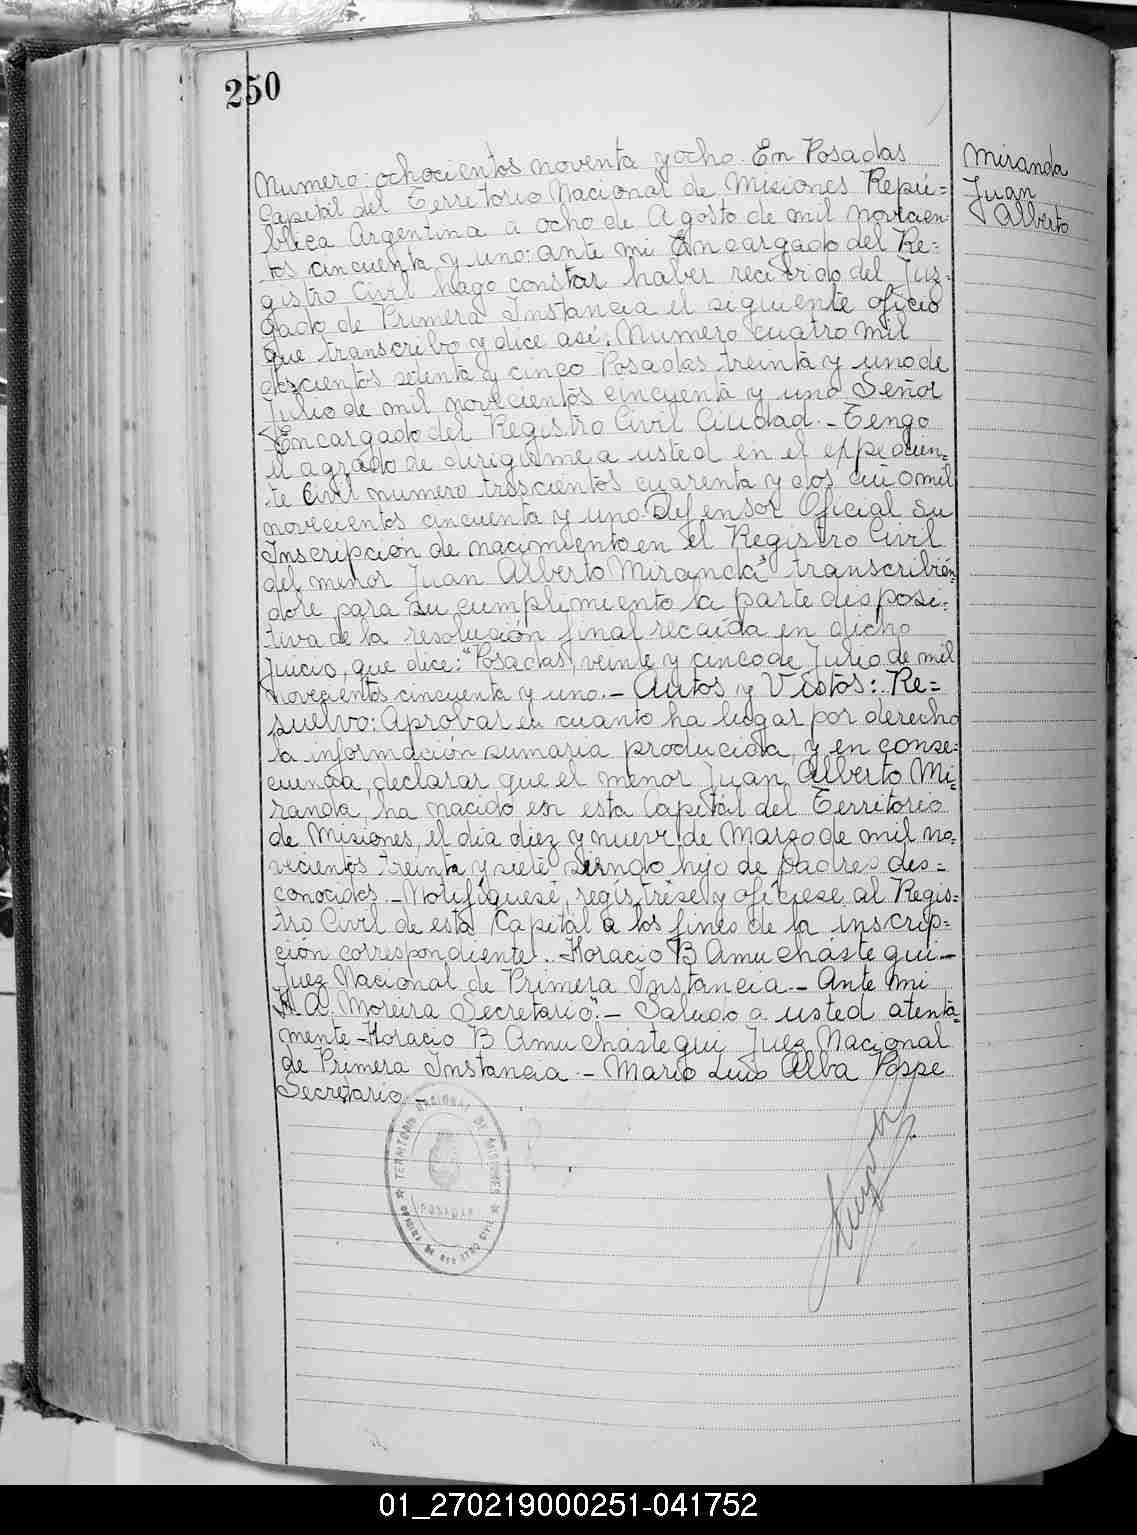 250
Miranda
Juan
Alberto
Numero: ochocientos noventa y ocho. En Posadas
Capital del Territorio Nacional de Misiones Repú=
blica Argentina a ocho de Agosto de mil novecien
tos cincuenta y uno: ante mi Encargado del Re=
gistro Civil hago constar haber recibido del Juz=
gado de Primera Instancia el siguiente oficio
que transcribo y dice asi: Numero cuatro mil
doscientos setenta y cinco Posadas treinta y uno de
Julio de mil novecientos cincuenta y uno Señor
Encargado del Registro Civil Ciudad.- Tengo
el agrado de dirigirme a usted en el expedien=
te Civil numero trescientos cuarenta y dos año mil
novecientos cincuenta y uno Defensor Oficial su
Inscripción de nacimiento en el Registro Civil
del menor Juan Alberto Miranda" transcribién=
dole para su cumplimiento la parte disposi=
tiva de la resolución final recaída en dicho
Juicio, que dice: "Posadas, veinte y cinco de Julio de mil
novecientos cincuenta y uno.- Autos y Vistos: Re=
suelvo: Aprobar en cuanto ha lugar por derecho
la información sumaria producida, y en conse=
cuencia, declarar que el menor Juan Alberto Mi=
randa, ha nacido en esta Capital del Territorio
de Misiones, el dia diez y nueve de Marzo de mil no=
vecientos treinta y siete siendo hijo de padres des=
conocidos.- Notifíquese, regístrese y ofíciese al Regis=
tro Civil de esta Capital a los fines de la inscrip=
ción correspondiente. Horacio B Amuchástegui-
Juez Nacional de Primera Instancia.- Ante mi
A. Moreira Secretario".- Saludo a usted atenta=
mente-Horacio B Amuchástegui Juez Nacional
de Primera Instancia.- Mario Luis Alba Posse
Secretario.-
TERRITORIO NACIONAL DE MISIONES
POSADAS
01_270219000251-041752